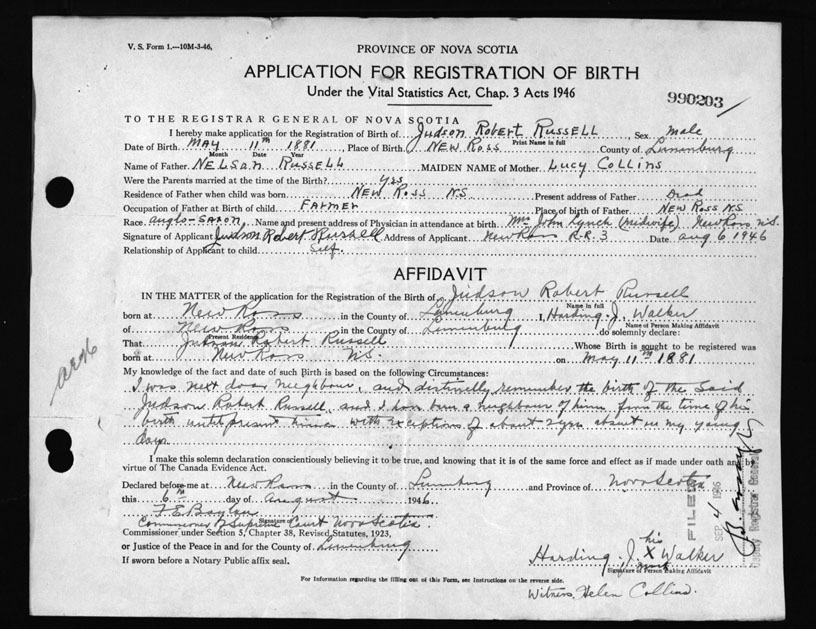 V. S. Form 1.—10M-3-46,
PROVINCE OF NOVA SCOTIA
APPLICATION FOR REGISTRATION OF BIRTH
Under the Vital Statistics Act, Chap. 3 Acts 1946
990203
TO THE REGISTRAR GENERAL OF NOVA SCOTIA
I hereby make application for the Registration of Birth of Judson Robert Russell Sex male
Print Name in full
Date of Birth MAY 11th 1881, Place of Birth New Ross County of Lunenburg
Month Date Year
Name of Father NELSAN RUSSELL MAIDEN NAME of Mother Lucy Collins
Were the Parents married at the time of the Birth? Yes
Residence of Father when child was born New Ross N.S. Present address of Father Dead
Occupation of Father at Birth of child Farmer Place of birth of Father New Ross N.S.
Race anglo-saxon Name and present address of Physician in attendance at birth Mrs John Lynch (midwife) New Ross N.S.
Signature of Applicant Judson Robert Russell Address of Applicant New Ross R.R. 3 Date aug 6 1946
Relationship of Applicant to child Self
AFFIDAVIT
IN THE MATTER of the application for the Registration of the Birth of Judson Robert Russell
Name in full
born at New Ross in the County of Lunenburg I, Harding J. Walker
Name of Person Making Affidavit
of New Ross in the County of Lunenburg do solemnly declare:
Present Residence
That Judson Robert Russell Whose Birth is sought to be registered was
born at New Ross N.S. on May 11th 1881
My knowledge of the fact and date of such Birth is based on the following Circumstances:
I was next door neighbour, and distinctly remember the birth of the said
Judson Robert Russell, and I have been a neighbour of his from the time of his
birth until present time with exceptions of about 2 yrs absent in my young
days
I make this solemn declaration conscientiously believing it to be true, and knowing that it is of the same force and effect as if made under oath and by
virtue of The Canada Evidence Act.
Declared before me at New Ross in the County of Lunenburg and Province of Nova Scotia
this 6th day of August 1946
Signature of
Commissioner of Supreme Court Nova Scotia
Commissioner under Section 5, Chapter 38, Revised Statutes, 1923,
or Justice of the Peace in and for the County of Lunenburg
If sworn before a Notary Public affix seal.
his
Harding J. X Walker
mark
Signature of Person Making Affidavit
For Information regarding the filling out of this Form, see Instructions on the reverse side.
Witness, Helen Collins
FILED
SEP 4 1946
Deputy Registrar General